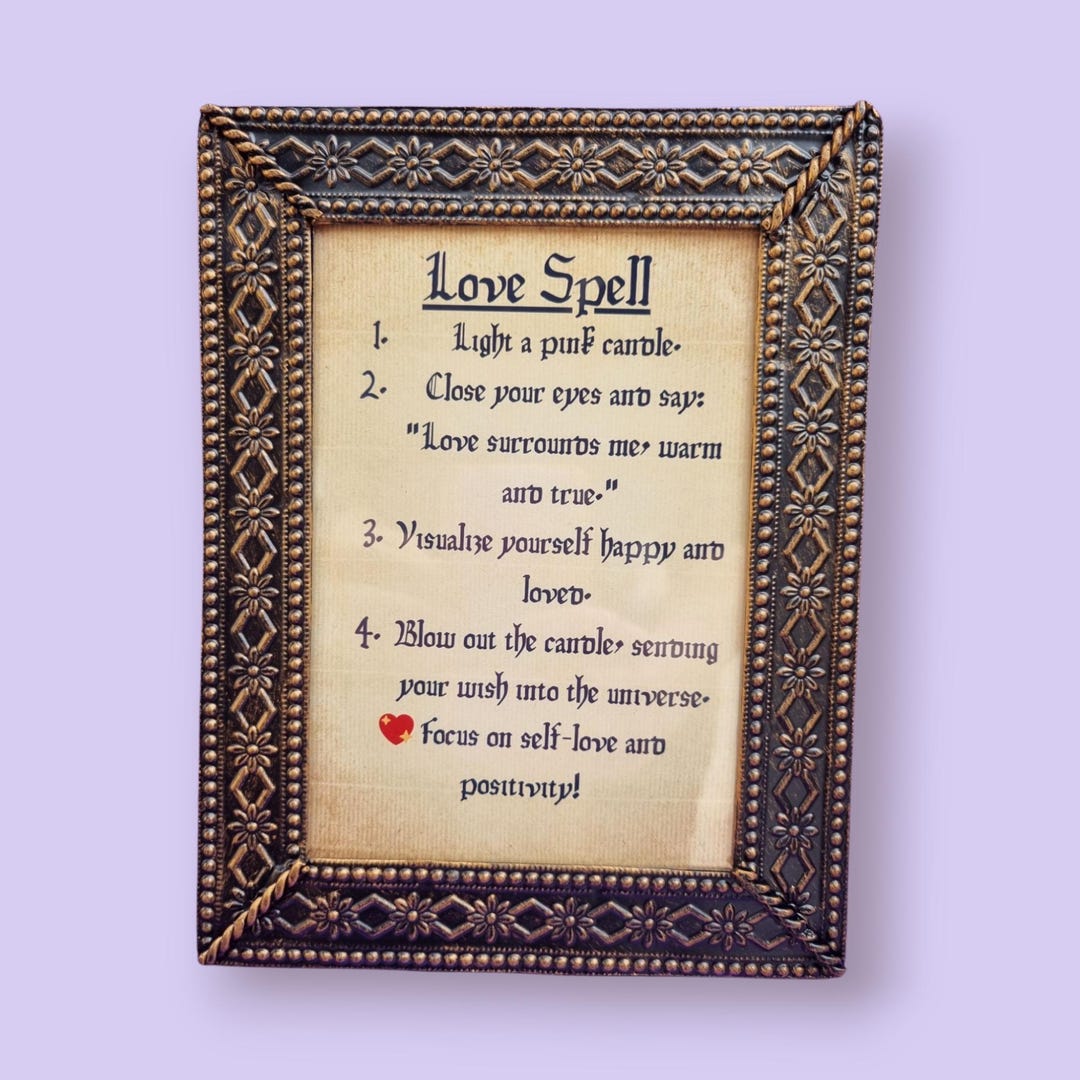 Love Spell
1. Light a pink candle.
2. Close your eyes and say:
"Love surrounds me, warm
and true."
3. Visualize yourself happy and
loved.
4. Blow out the candle, sending
your wish into the universe.
💖 Focus on self-love and
positivity!